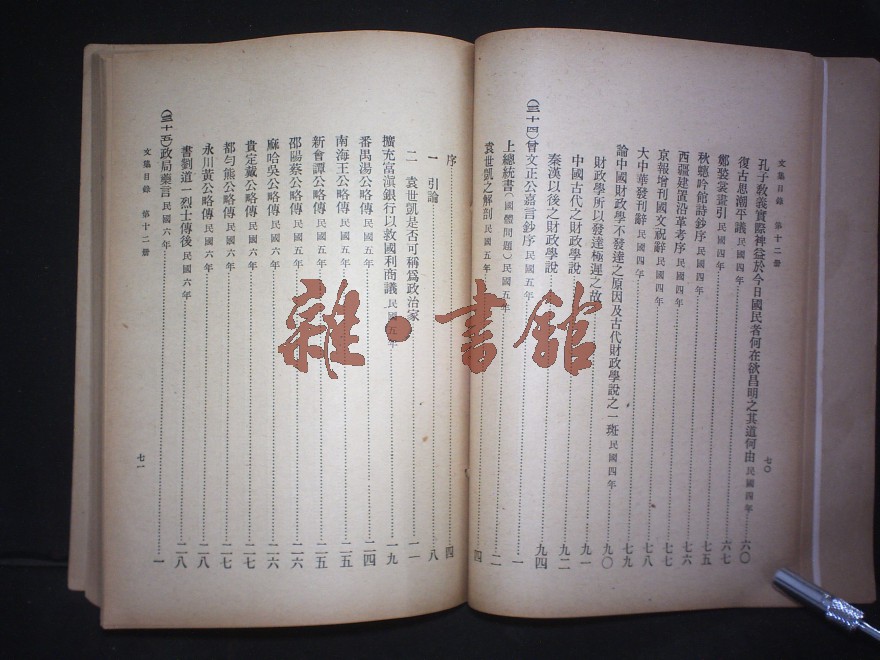 文集目錄 第十二册
七〇
孔子敎義實際裨益於今日國民者何在欲昌明之其道何由 民國四年 六〇
復古思潮平議 民國四年 六七
鄭䮚裳畫引 民國四年
秋蟪吟館詩鈔序 民國四年 七五
西疆建置沿革考序 民國四年 七六
京報增刊國文祝辭 民國四年 七七
大中華發刊辭 民國四年 七八
論中國財政學不發達之原因及古代財政學說之一斑 民國四年 七九
財政學所以發達極遲之故 九〇
中國古代之財政學說 九一
秦漢以後之財政學說 九二
(三十四)曾文正公嘉言鈔序 民國五年 九四
上總統書(國體問題)民國五年 一
袁世凱之解剖 民國五年 二
四
序 四
一 引論 八
二 袁世凱是否可稱爲政治家 一一
擴充富滇銀行以救國利商議 民國五年 一九
番禺湯公略傳 民國五年 二四
南海王公略傳 民國五年 二五
新會譚公略傳 民國五年 二五
邵陽蔡公略傳 民國五年 二六
麻哈吳公略傳 民國六年 二六
貴定戴公略傳 民國六年 二七
都勻熊公略傳 民國六年 二七
永川黃公略傳 民國六年 二八
書劉道一烈士傳後 民國六年 二八
(三十五)政局藥言 民國六年 一
文集目錄 第十二册
七一
雜·書館